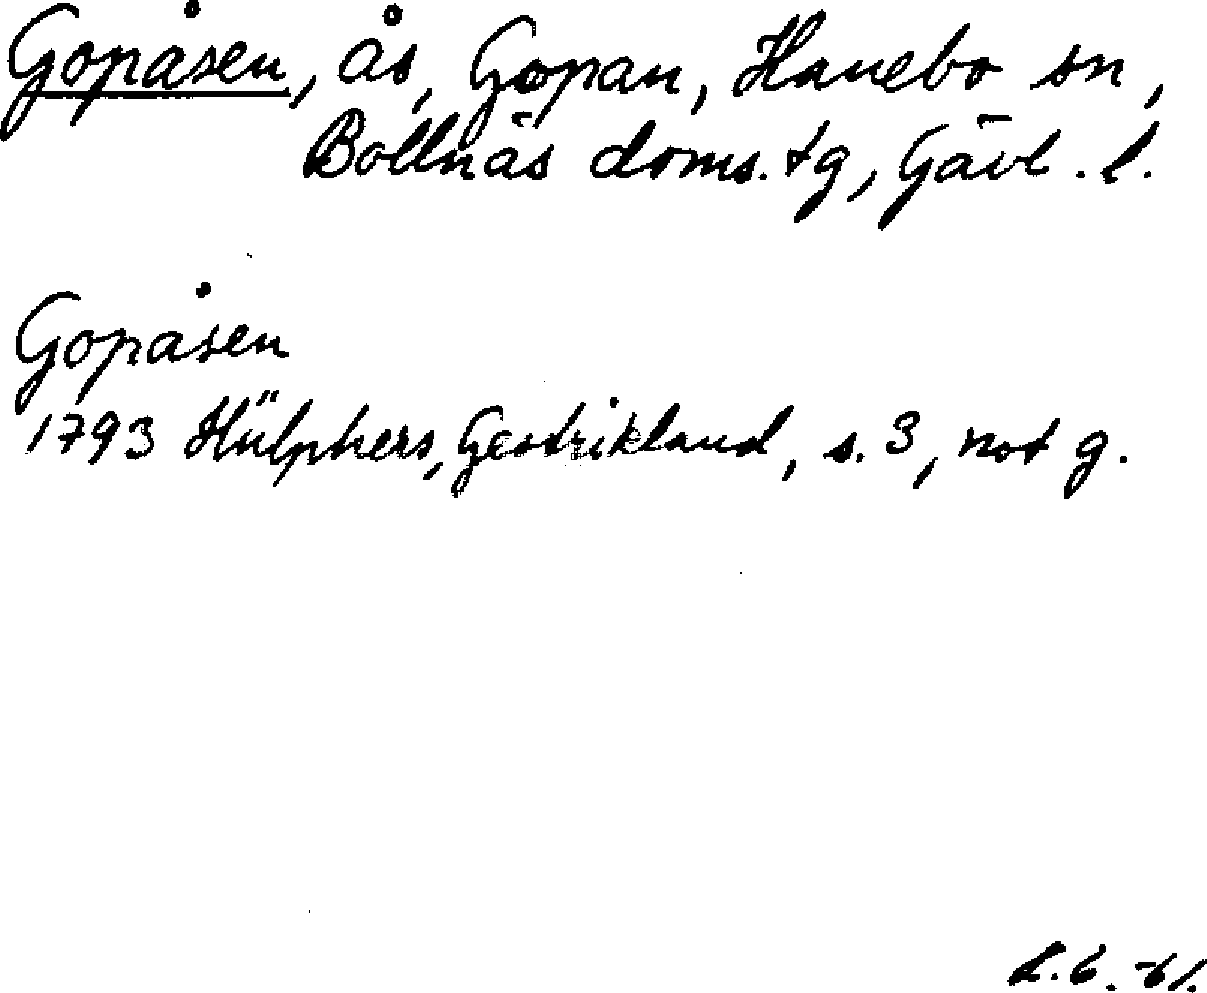 Gopåsen, ås, Gopan, Hanebo sn,
Bollnäs doms.tg, Gävl. l.
Gopåsen
1793 Hülphers, Gestrikland, s. 3, not g.
L.6.-61.